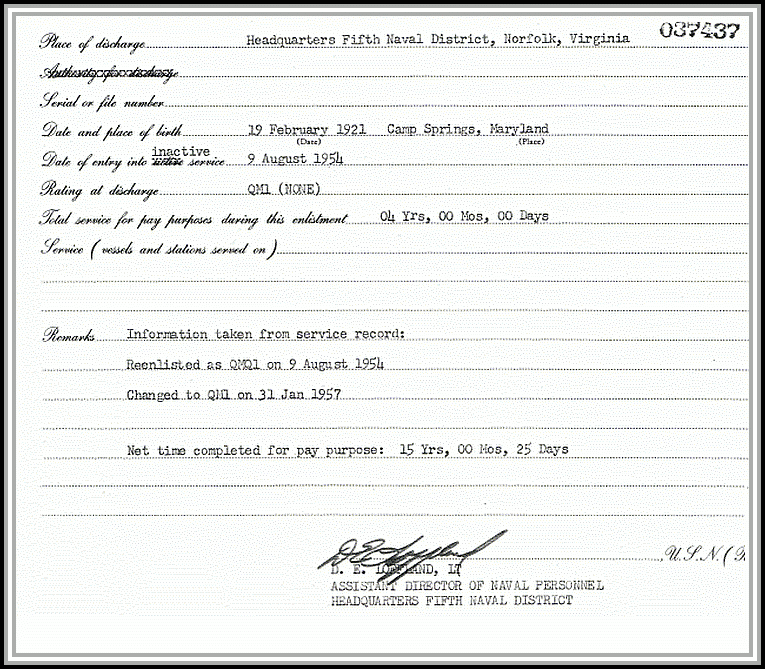 037437
Place of discharge Headquarters Fifth Naval District, Norfolk, Virginia
Authority for discharge
Serial or file number
Date and place of birth 19 February 1921 Camp Springs, Maryland
(Date) (Place)
inactive
Date of entry into active service 9 August 1954
Rating at discharge QM1 (NONE)
Total service for pay purposes during this enlistment 04 Yrs, 00 Mos, 00 Days
Service (vessels and stations served on)
Remarks Information taken from service record:
Reenlisted as QMQ1 on 9 August 1954
Changed to QM1 on 31 Jan 1957
Net time completed for pay purpose: 15 Yrs, 00 Mos, 25 Days
, U.S.N. (
D. E. LOFFLAND, LT
ASSISTANT DIRECTOR OF NAVAL PERSONNEL
HEADQUARTERS FIFTH NAVAL DISTRICT